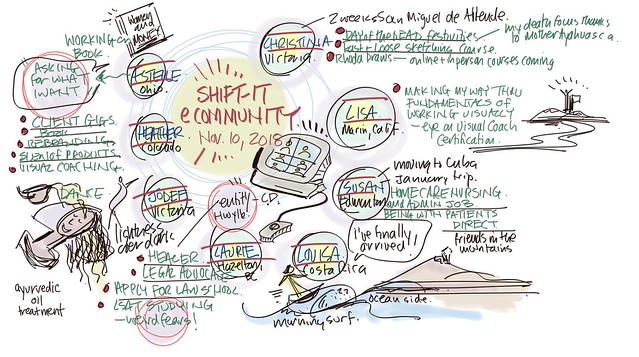 WOMEN
and
MONEY
WORKING on
BOOK.
ASKING
FOR WHAT
I WANT
ASTELLE
Ohio.
CLIENT GIGS.
BOOK
REBRANDING
SLEW OF PRODUCTS
VISUAL COACHING.
HEATHER
Colorado
SHIFT-IT
eCOMMUNITY
Nov. 10, 2018
CHRISTINA
Victoria.
2 weeks San Miguel de Allende.
DAY of the DEAD festivities
my death focus thanks
to Mother Ayahuasca.
Fast + Loose sketching course.
Rhoda Draws - online + in person courses coming
LISA
Marin, Calif.
MAKING MY WAY THRU
FUNDAMENTALS OF
WORKING VISUALLY
- eye on Visual Coach
Certification.
SUSAN
Edmonton
moving to Cuba
January trip.
HOMECARE NURSING.
and ADMIN JOB.
BEING WITH PATIENTS
DIRECT
friends in the
mountains
JODEE
Victoria
DANCE
lightness
and dark
ayurvedic
oil
treatment
LAURIE
Hazelton
BC
HEALER
LEGAL ADVOCATE
APPLY FOR LAW SCHOOL
LSAT STUDYING
- weird fears!
LOUISA
Costa Rica
i've finally
arrived!
ocean side.
morning surf.